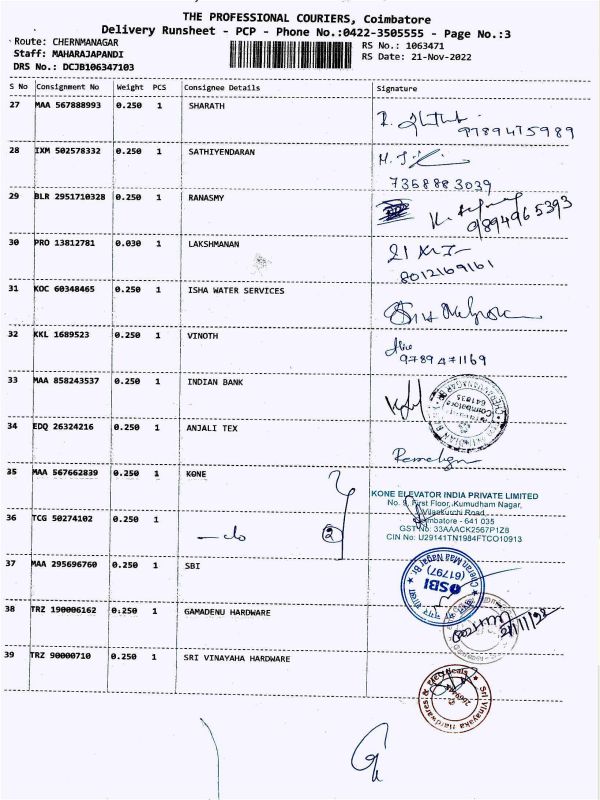 THE PROFESSIONAL COURIERS, Coimbatore
Delivery Runsheet - PCP - Phone No.:0422-3505555 - Page No.:3
Route: CHERNMANAGAR
RS No.: 1063471
Staff: MAHARAJAPANDI
RS Date: 21-Nov-2022
DRS No.: DCJB106347103
S No Consignment No Weight PCS Consignee Details Signature
27 MAA 567888993 0.250 1 SHARATH
9789475989
28 IXM 502578332 0.250 1 SATHIYENDARAN
7358883039
29 BLR 2951710328 0.250 1 RANASMY
9894965393
30 PRO 13812781 0.030 1 LAKSHMANAN
8012169161
31 KOC 60348465 0.250 1 ISHA WATER SERVICES
32 KKL 1689523 0.250 1 VINOTH
9789471169
33 MAA 858243537 0.250 1 INDIAN BANK
34 EDQ 26324216 0.250 1 ANJALI TEX
35 MAA 567662839 0.250 1 KONE
KONE ELEVATOR INDIA PRIVATE LIMITED
No. 9, First Floor, Kumudham Nagar,
Vilankurchi Road
Coimbatore - 641 035
GST No: 33AAACK2567P1Z8
CIN No: U29141TN1984FTCO10913
36 TCG 50274102 0.250 1 -do 2
37 MAA 295696760 0.250 1 SBI
SBI
(61797)
Cheran Maa Nagar Br.
38 TRZ 190006162 0.250 1 GAMADENU HARDWARE
39 TRZ 90000710 0.250 1 SRI VINAYAHA HARDWARE
Sri Vinayaka Hardwares &